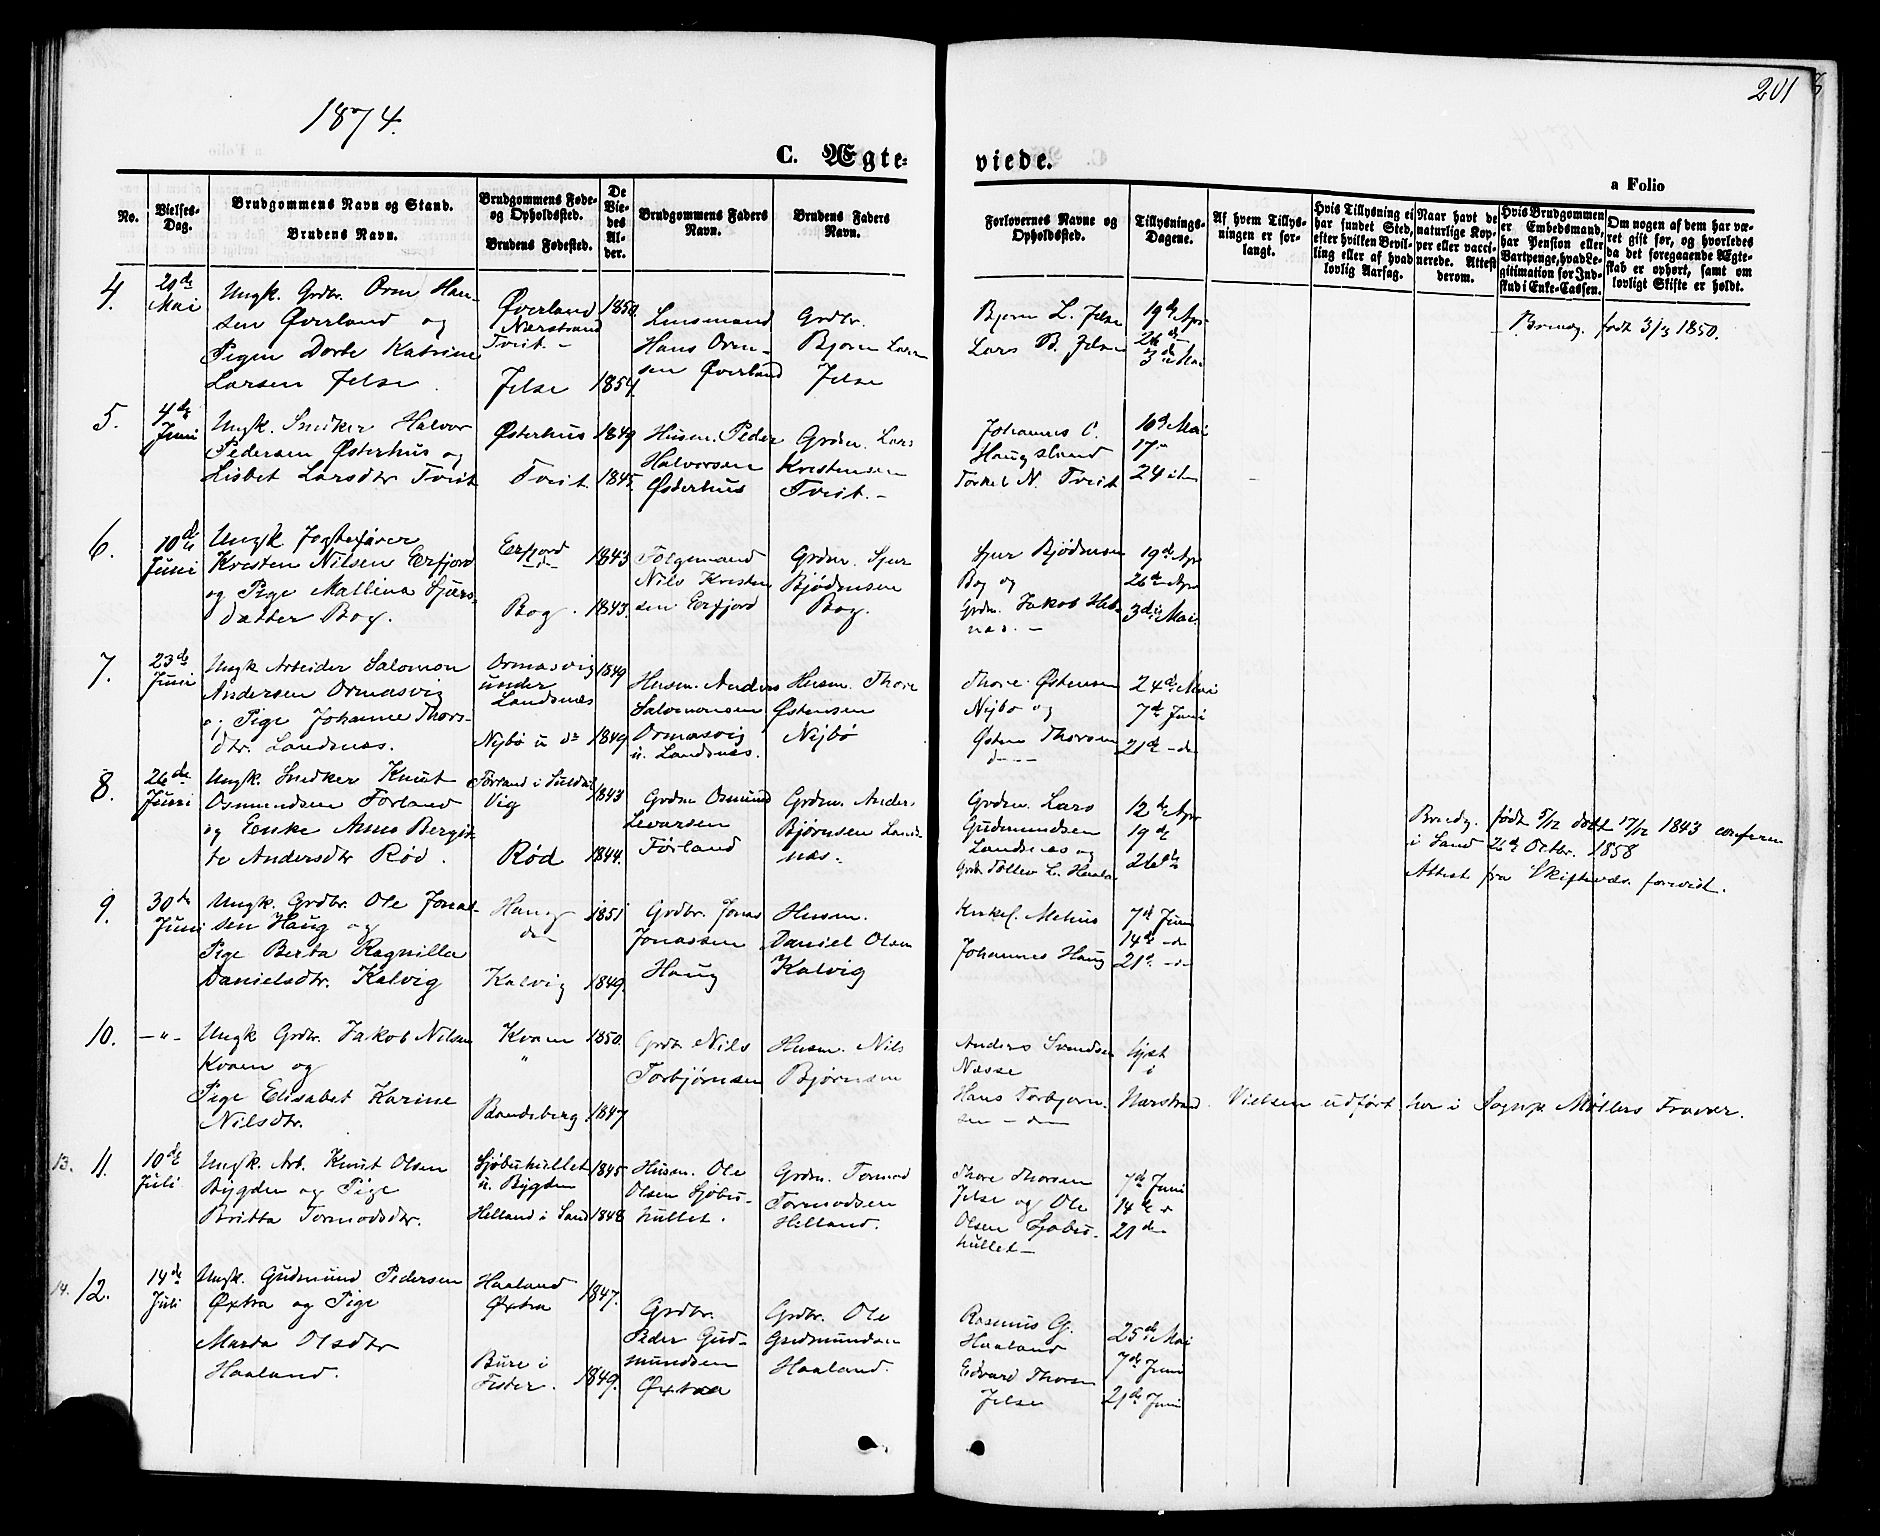 201
1874.
C. Ægte-
viede.
a Folio
No.
Vielses-
Dag.
Brudgommens Navn og Stand.
Brudens Navn.
Brudgommens Føde-
og Opholdssted.
Brudens Fødested.
De
Vie-
des
Al-
der.
Brudgommens Faders
Navn.
Brudens Faders
Navn.
Forlovernes Navne og
Opholdssted.
Tillysnings-
Dagene.
Af hvem Tillys-
ningen er for-
langt.
Hvis Tillysning ei
har fundet Sted,
efter hvilken Bevil-
ling eller af hvad
lovlig Aarsag.
Naar havt de
naturlige Kop-
per eller vacci-
nerede. Attest
derom.
Hvis Brudgommen
er Embedsmand,
har Pension eller
Vartpenge, hvad Le-
gitimation for Ind-
skud i Enke-Cassen.
Om nogen af dem har væ-
ret gift før, og hvorledes
da det foregaaende Ægte-
skab er ophørt, samt om
lovligt Skifte er holdt.
4.
Mai
Ungk. Grdbr. Orm Han-
sen Øverland og
Pigen Dorte Katrine
Larsen Jelse.
Øverland
Nærstrand
Tveit.-
Jelse
1850.
1854.
Lensmand
Hans Orm-
sen Øverland
Grdbr.
Bjørn Larsen
Jelse
Bjørn L. Jelse
Lars B. Jelse
19de Apr
26 d-
3 de Mai
Brudg. født 3/3 1850.
5.
4de
Juni
Ungk. Snedker Halvor
Pedersen Østerhus og
Lisbet Larsdtr Tveit
Østerhus
Tveit.
1849
1845.
Husm. Peder
Halvorsen
Østerhus
Grdm. Lars
Kristensen
Tveit.-
Johannes C.
Haugsland
Torkel N. Tveit
10d Mai
17-
24
6.
10de
Juni
Ungk Jagtefører
Kristen Nilsen Erfjord
og Pige Mallina Sjurs-
datter Bog.
Erfjord
Bog.
1843
1843.
Folgemand
Nils Kristen
sen Erfjord
Grdm. Sjur
Bjødnsen
Bog.
Sjur Bjødnsen
Bog og
Grdm. Jakob Heb-
næs.-
19de Apr
26de Apr
3die Mai.
7.
23de
Juni
Ungk Arbeider Salomon
Andersen Ormasvig
og Pige Johanne Thors-
dtr. Landsnæs.
Ormasvig
under
Landsnæs
Nijbø u do
1849
1849
Husm. Anders
Salomonsen
Ormasvig
u. Landsnæs.
Husm. Thore
Østensen
Nijbø
Thore Østensen
Nijbø og
Østen Thorsen
d---
24de Mai
7de Juni
21de -do
8.
26de
Juni
Ungk. Snedker Knut
Osmundsen Førland
og Enke Anna Bergit-
te Andersdtr Rød.
Førland i Suldal
Vig
Rød
1843
1844.
Grdm Osmund
Levarsen
Førland
Grdm. Anders
Bjørnsen Lands-
næs.
Grdm. Lars
Gudmundsen
Landsnæs og
Grdbr Tollev L. Haala
12de Apr
19de
26de
Brudg. født 5/12 døbt 17/12 1843 confirm
i Sand 26de Octbr. 1858
Attest fra Skiftevæs. forevist.
9.
30te
Juni
Ungk. Grdbr. Ole Jonas-
sen Haug og
Pige Berta Ragnilla
Danielsdtr. Kalvig
Haug
do
Kalvig
1851
1849.
Grdbr. Jonas
Jonassen
Haug
Husm.
Daniel Olsen
Kalvig
Kirkes. Mehus
Johannes Haug
7de Juni
14de -do
21d. -do
10.
-"-
Ungk Grdbr. Jakob Nilsen
Kvam og
Pige Elisabet Karine
Nilsdtr.
Kvam
"
Randeberg
1850.
1847
Grdbr Nils
Torbjørnsen
Husm. Nils
Bjørnsen
Anders Svendsen
Næsse
Hans Torbjørn-
sen - do
lyst
i
Nærstrand. Vielsen udført her i Sognp. Møllers Fravær.
13. 11.
10de
Juli
Ungk. Arb. Knut Olsen
Bygden og Pige
Britta Tormodsdtr.
Sjøbuhullet
u. Bygden
Helland i Sand
1845
1848
Husm. Ole
Olsen Sjøbu-
hullet.
Grdm. Tormod
Tormodsen
Helland.
Thore Thorsen
Jelse og Ole
Olsen Sjøbu-
hullet-
7de Juni
14de
21 do
14. 12.
14de
Juli
Ungk. Gudmund Pedersen
Øxtra og Pige
Marta Olsdtr
Haaland.
Haaland
Øxtra
Bure i
Fister.
1847.
1849.
Grdbr.
Peder Gud-
mundsen
Øxtraa
Grdbr. Ole
Gudmundsen
Haaland.
Rasmus G.
Haaland
Edvard Thorsen
Jelse
25de Mai
7de Juni
21de Juni